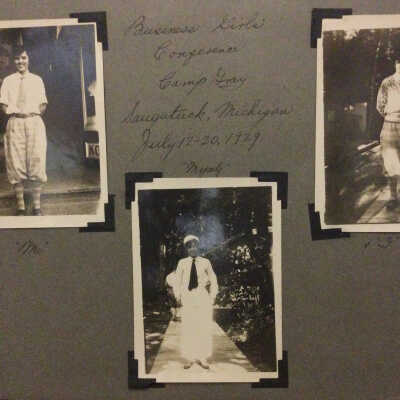 Business Girls'
Conference
Camp Gray
Saugatuck, Michigan
July 12-20, 1929
"Me"